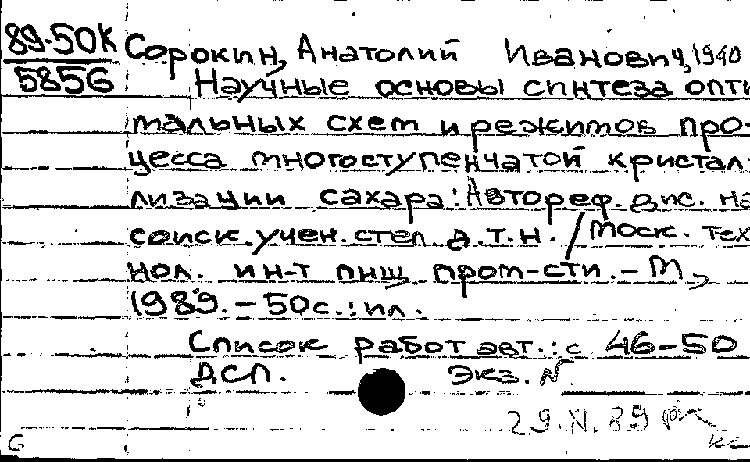 89-50К Сорокин, Анатолий Иванович, 1940
5856 Научные основы синтеза опти
мальных схем и режимов про-
цесса многоступенчатой кристал-
лизации сахара: Автореф. дис. на
соиск. учен. степ. д.т.н. / Моск. тех
нол. ин-т пищ. пром-сти. - М.,
1989. - 50 с.: ил.
Список работ авт.: с 46-50
ДСП. Экз. N
29.XI.89
6